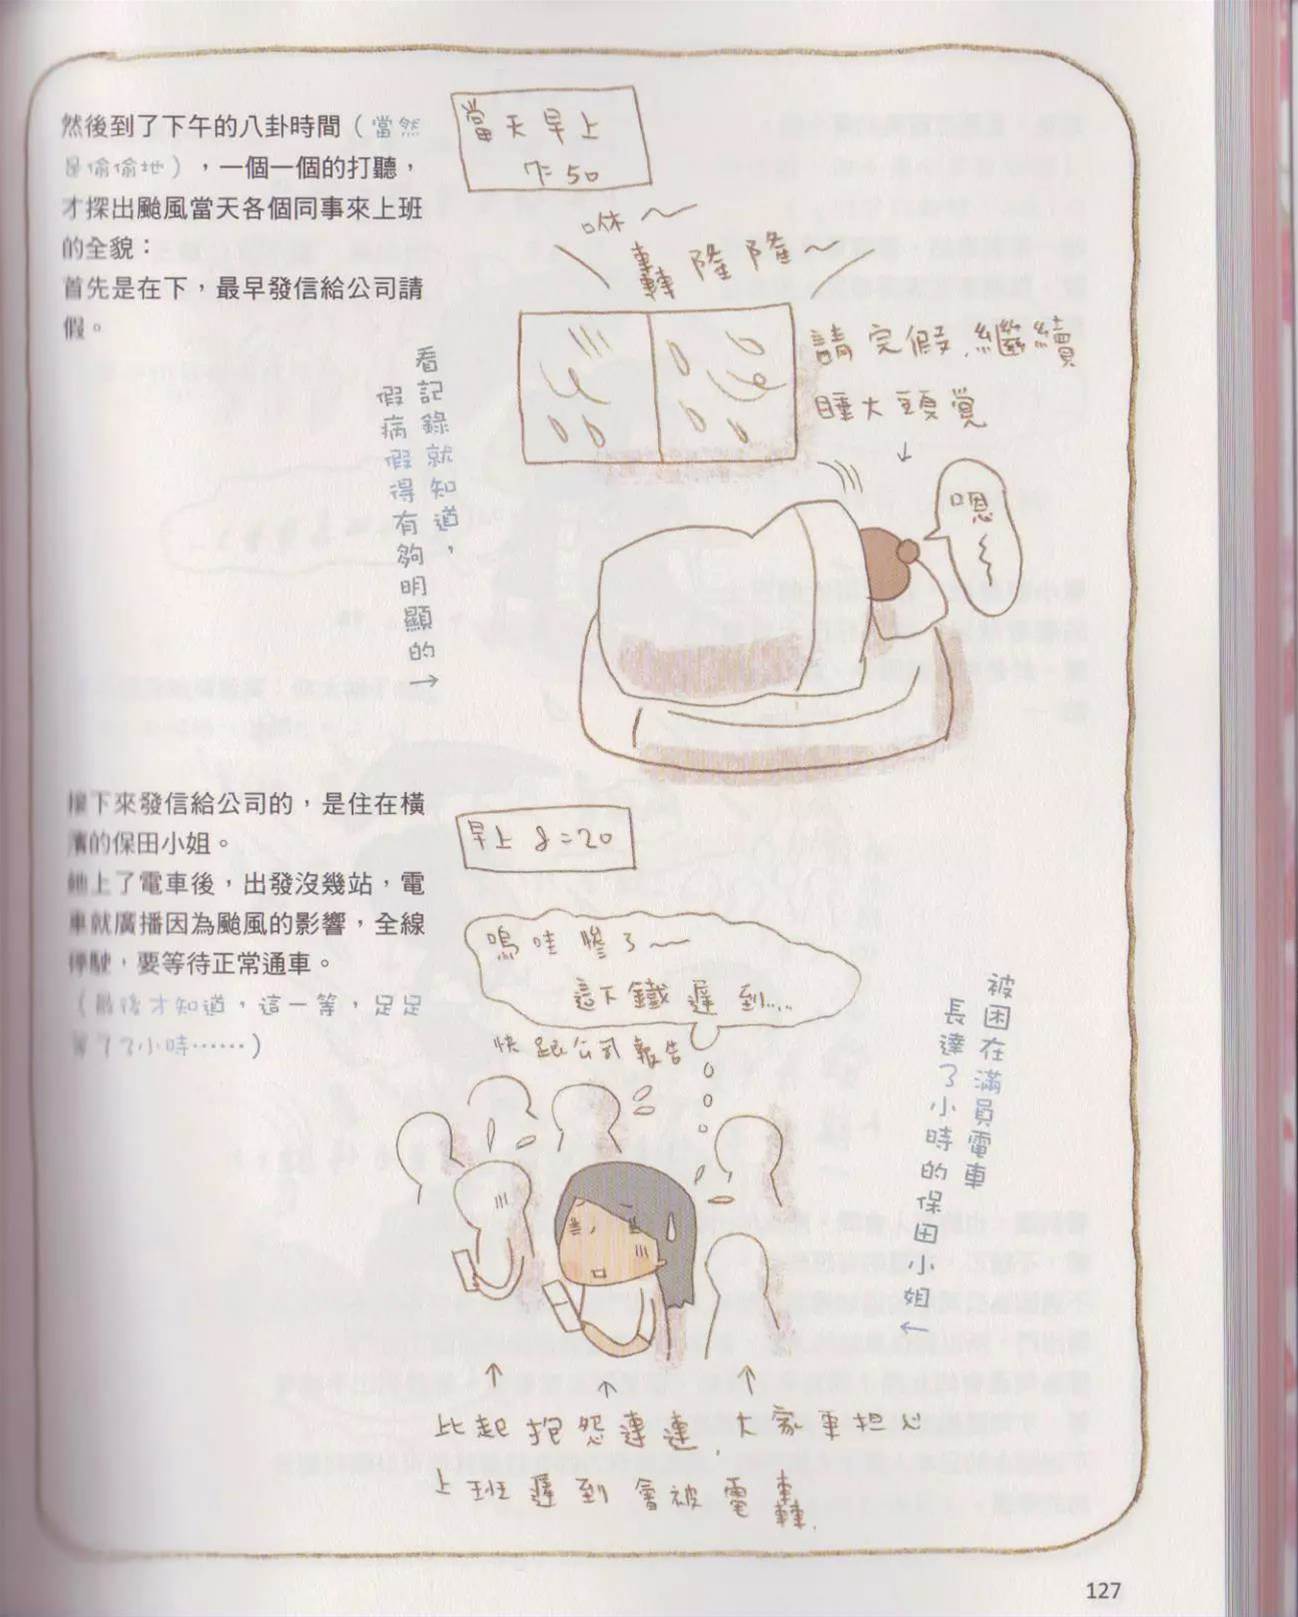 然後到了下午的八卦時間（當然
是偷偷地），一個一個的打聽，
才探出颱風當天各個同事來上班
的全貌：
首先是在下，最早發信給公司請
假。
看記錄就知道，
假病假得有夠明顯的→
當天早上
7:50
咻～
轟隆隆～
請完假，繼續
睡大頭覺
嗯～
接下來發信給公司的，是住在橫
濱的保田小姐。
她上了電車後，出發沒幾站，電
車就廣播因為颱風的影響，全線
停駛，要等待正常通車。
（最後才知道，這一等，足足
等了3小時……）
早上 8:20
嗚哇慘了～
這下鐵遲到....
快跟公司報告
被困在滿員電車
長達3小時的保田小姐←
比起抱怨連連，大家更担心
上班遲到會被電轟.
127